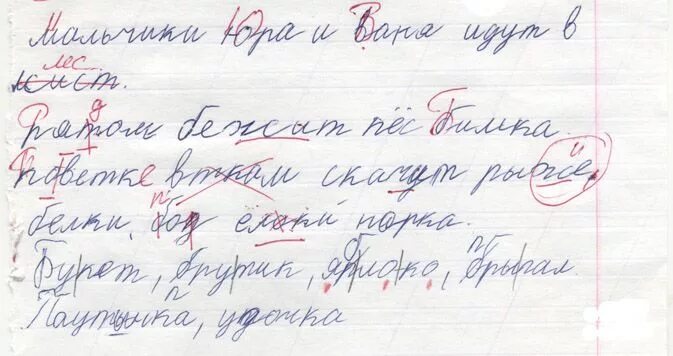 Мальчики Юра и Ваня идут в
лес.
Рятом бежит пёс Бимка.
По ветке вткам скачут рыжие
белки, под ёлкой норка.
Букет, брутик, яблоко, брыгал
Паутынка, удочка